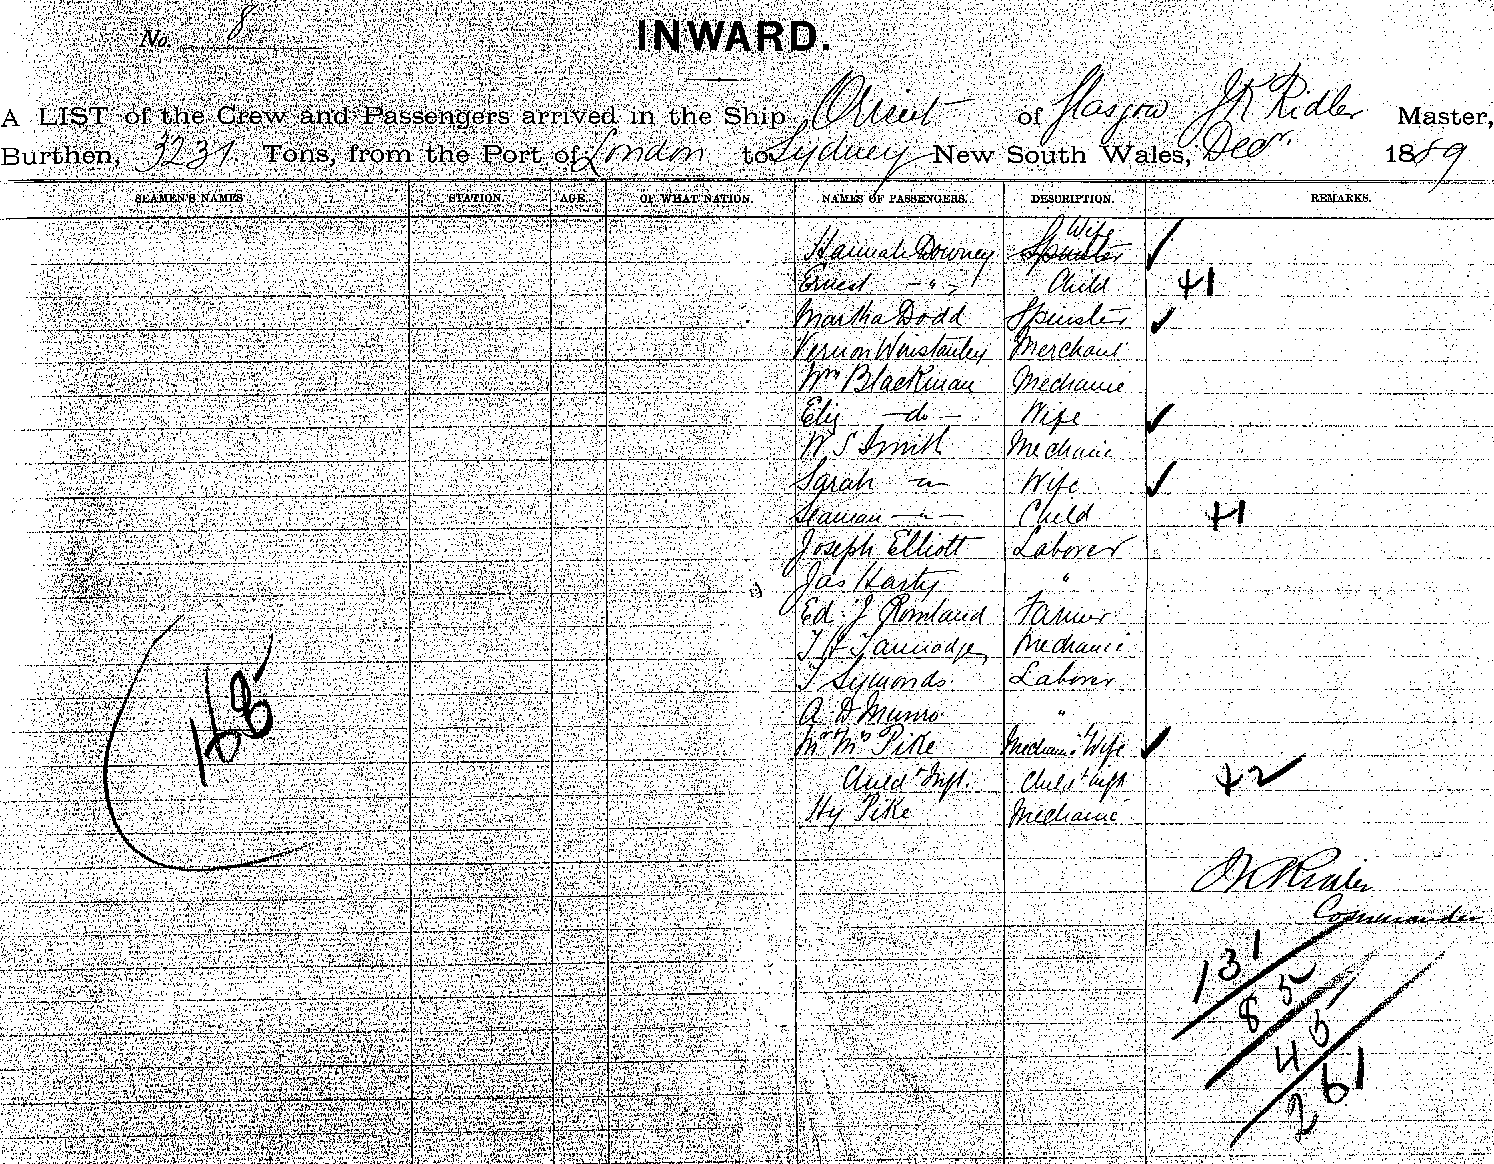 No. 8
INWARD.
A LIST of the Crew and Passengers arrived in the Ship Orient of Glasgow J K Ridler Master,
Burthen, 3231 Tons, from the Port of London to Sydney New South Wales, Decr. 1889
SEAMEN'S NAMES STATION. AGE. OF WHAT NATION. NAMES OF PASSENGERS. DESCRIPTION. REMARKS.
Wife
Hannah Downey Spinster ✓
Ernest - " - Child +1
Martha Dodd Spinster ✓
Vernon Winstanley Merchant
Wm Blackman Mechanic
Eliz - do - Wife ✓
W S Smith Mechanic
Sarah - " - Wife ✓
Seaman - " - Child +1
Joseph Elliott Laborer
Jas Harty "
Ed. J Rowland Farmer
T H Mechanic
T Symonds Laborer
A D Munro "
Mr & Mrs Pike Mechanic & Wife ✓
Child & Inft. Child & Inft +2
Hy Pike Mechanic
Ridler
Commander
131
85
45
261